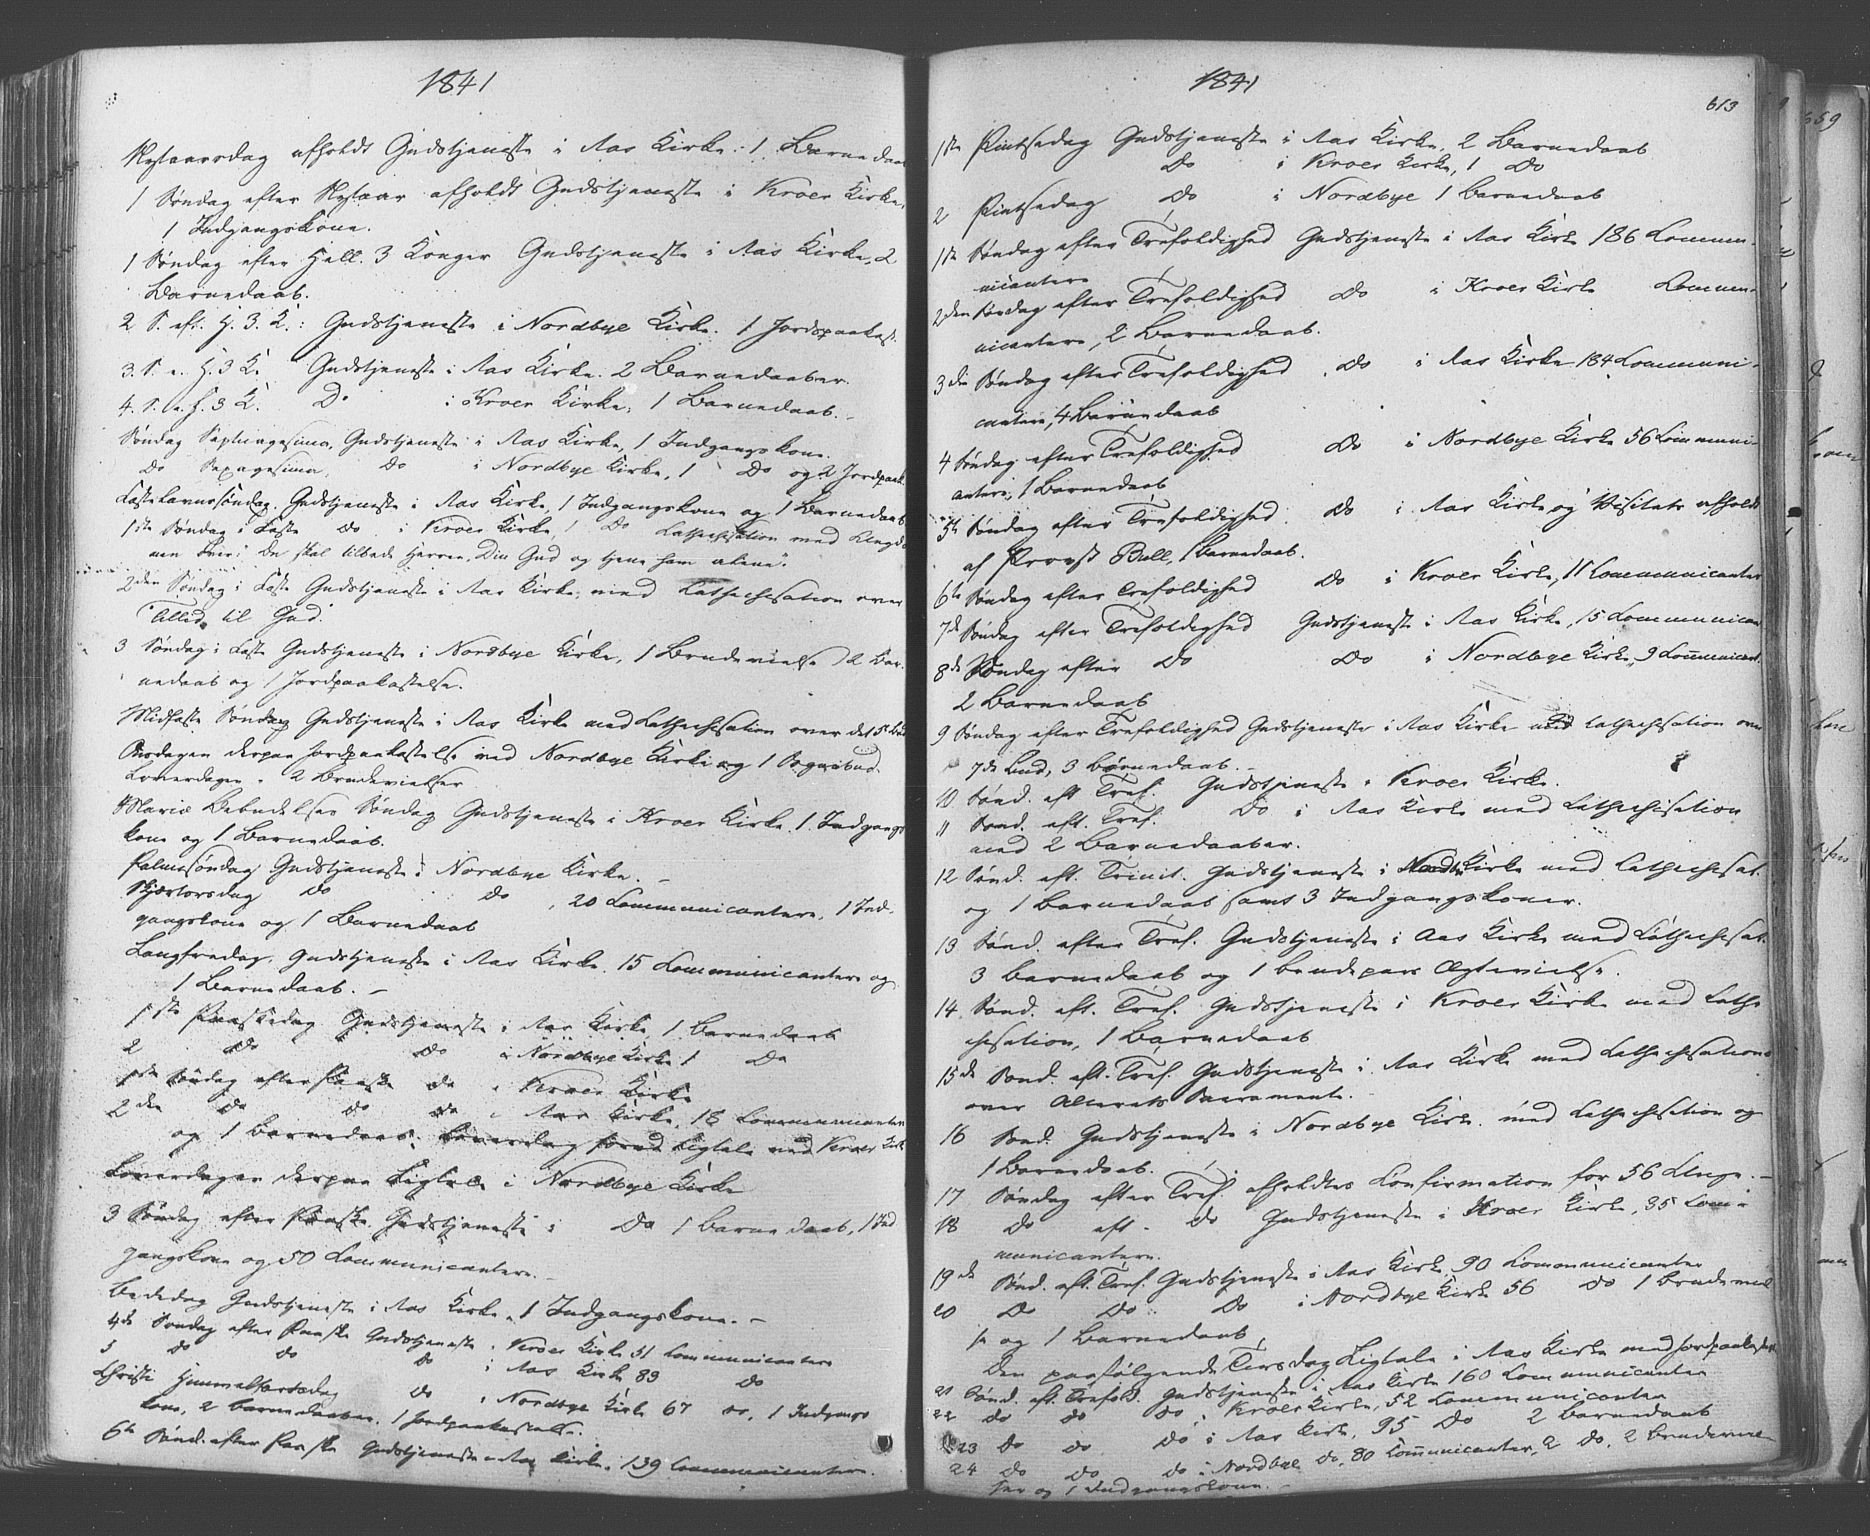 1841
Nytaarsdag afholdt Gudstjeneste i Aas Kirke. 1 Barnedaab
1 Søndag efter Nytaar afholdt Gudstjeneste i Kroer Kirke,
1 Indgangskone.
1 Søndag efter Hell. 3 Konger Gudstjeneste i Aas Kirke, 2
Barnedaab.
2 S. eft. H. 3. K.: Gudstjeneste i Nordbye Kirke. 1 Jordpaakast.
3. S. e. H. 3 K. Gudstjeneste i Aas Kirke. 2 Barnedaaber.
4. S. e. H. 3 K. Do i Kroer Kirke, 1 Barnedaab.
Søndag Septuagesima, Gudstjeneste i Aas Kirke, 1 Indgangskone.
Do Sexagesima, Do i Nordbye Kirke, 1 Do og 2 Jordpaak.
Fastelavnssøndag, Gudstjeneste i Aas Kirke, 1 Indgangskone og 1 Barnedaab
1ste Søndag i Faste Do i Kroer Kirke, 1 Do Cathechisation med Ungdo
men over: Du skal tilbede Herren, Din Gud og tjene ham alene".
2den Søndag i Faste Gudstjeneste i Aas Kirke, med Cathechisation over
Tillid til Gud.
3 Søndag i Faste Gudstjeneste i Nordbye Kirke, 1 Brudevielse, 2 Bar-
nedaab og 1 Jordpaakastelse.
Midfaste Søndag Gudstjeneste i Aas Kirke med Cathechisation over det 5te Bud
Onsdagen derpaa Jordpaakastelse ved Nordbye Kirke og 1 Sognebud.
Løverdagen 2 Brudevielser
Mariæ Bebudelses Søndag Gudstjeneste i Kroer Kirke. 1 Indgangs
kone og 1 Barnedaab.
Palmesøndag Gudstjeneste i Nordbye Kirke.
Skjærtorsdag Do Do, 20 Communicantere, 1 Ind-
gangskone og 1 Barnedaab
Langfredag, Gudstjeneste i Aas Kirke. 15 Communicantere og
1 Barnedaab.
1ste Paaskedag Gudstjeneste i Aas Kirke, 1 Barnedaab
2 Do Do i Nordbye Kirke 1 Do
1ste Søndag efter Paaske Do i Kroer Kirke
2den Do Do Do i Aas Kirke, 18 Communicanter
og 1 Barnedaab. Løverdag forud Ligtale ved Kroer Kirk
Løverdagen derpaa Ligtale i Nordbye Kirke
3 Søndag efter Paaske, Gudstjeneste i Do 1 Barnedaab, 1 Ind
gangskone og 50 Communicantere.
Bededag Gudstjeneste i Aas Kirke, 1 Indgangskone.
4de Søndag efter Paaske Gudstjeneste i Kroer Kirke 51 Communicantere
5 Do Do Do i Aas Kirke 89 Do
Christi Himmelfartsdag Do i Nordbye Kirke 67 Do, 1 Indgangs
kone, 2 Barnedaaber, 1 Jordpaakastelse.
6te Sønd. efter Paaske Gudstjeneste i Aas Kirke. 139 Communicantere.
1841
613
1ste Pintsedag Gudstjeneste i Aas Kirke, 2 Barnedaab
Do i Kroer Kirke, 1 Do
2 Pintsedag Do i Nordbye 1 Barnedaab
1ste Søndag efter Trefoldighed Gudstjeneste i Aas Kirke 186 Commu-
nicantere
2den Søndag efter Trefoldighed Do i Kroer Kirke Commu-
nicantere, 2 Barnedaab.
3die Søndag efter Trefoldighed Do i Aas Kirke 184 Communi-
cantere, 4 Barnedaab
4 Søndag efter Trefoldighed Do i Nordbye Kirke 56 Communi-
cantere, 1 Barnedaab
5te Søndag efter Trefoldighed Do i Aas Kirke og Visitats afholdt
af Provst Bull, 1 Barnedaab.
6te Søndag efter Trefoldighed Do i Kroer Kirke, 11 Communicanter
7de Søndag efter Trefoldighed Gudstjeneste i Aas Kirke, 15 Communican
8de Søndag efter Do Do i Nordbye Kirke, 9 Communicant.
2 Barnedaab
9 Søndag efter Trefoldighed Gudstjeneste i Aas Kirke med Cathechisation over
7de Bud, 3 Barnedaab.
10 Sønd. eft Tref. Gudstjeneste i Kroer Kirke.
11 Sønd. eft. Tref. Do i Aas Kirke med Cathechisation
med 2 Barnedaaber.
12 Sønd. eft. Trinit. Gudstjeneste i Nordb. Kirke med Cathechisat.
og 1 Barnedaab samt 3 Indgangskoner.
13 Sønd. efter Tref. Gudstjeneste i Aas Kirke med Cathechisat.
3 Barnedaab og 1 Brudepars Ægtevielse.
14 Sønd. eft. Tref. Gudstjeneste i Kroer Kirke med Cathe
chisation, 1 Barnedaab
15de Sønd. eft. Tref. Gudstjeneste i Aas Kirke med Cathechisation
over Alterets Sacramente.
16 Sønd. Gudstjeneste i Nordbye Kirke med Cathechisation og
1 Barnedaab.
17 Søndag efter Tref. afholdtes Confirmation for 56 Unge.
18 Do eft. Do Gudstjeneste i Kroer Kirke, 35 Com-
municantere.
19de Sønd. eft. Tref. Gudstjeneste i Aas Kirke 90 Communicanter
20 Do Do Do i Nordbye Kirke 56 Do 1 Brudeviel
se og 1 Barnedaab
Den paafølgende Tirsdag Ligtale i Aas Kirke med Jordpaakastelse
21 Sønd. eft. Trefold. Gudstjeneste i Aas Kirke 160 Communicanter
22 Do Do Do i Kroer Kirke, 52 Communicanter
23 Do Do Do i Aas Kirke, 95 Do 2 Barnedaab
24 Do Do Do i Nordbye Do, 80 Communicanter, 2 Do, 2 Brudeviel
ser og 1 Indgangskone.
659